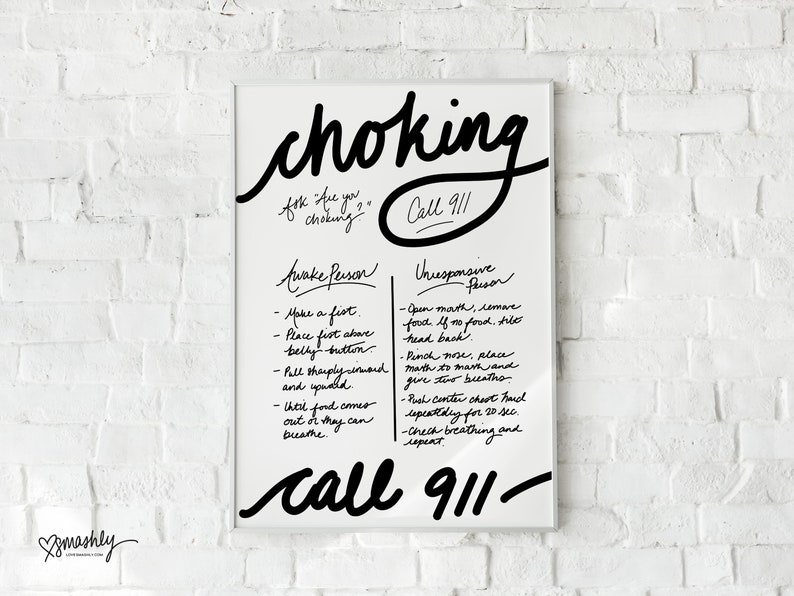 choking
Ask "Are you
choking?"
Call 911
Awake Person
- Make a fist.
- Place fist above
belly button.
- Pull sharply inward
and upward.
- Until food comes
out or they can
breathe.
Unresponsive
Person
- Open mouth, remove
food. If no food, tilt
head back.
- Pinch nose, place
math to math and
give two breaths.
- Push center chest hard
repeatedly for 20 sec.
- Check breathing and
repeat.
call 911
smashly
LOVESMASHLY.COM